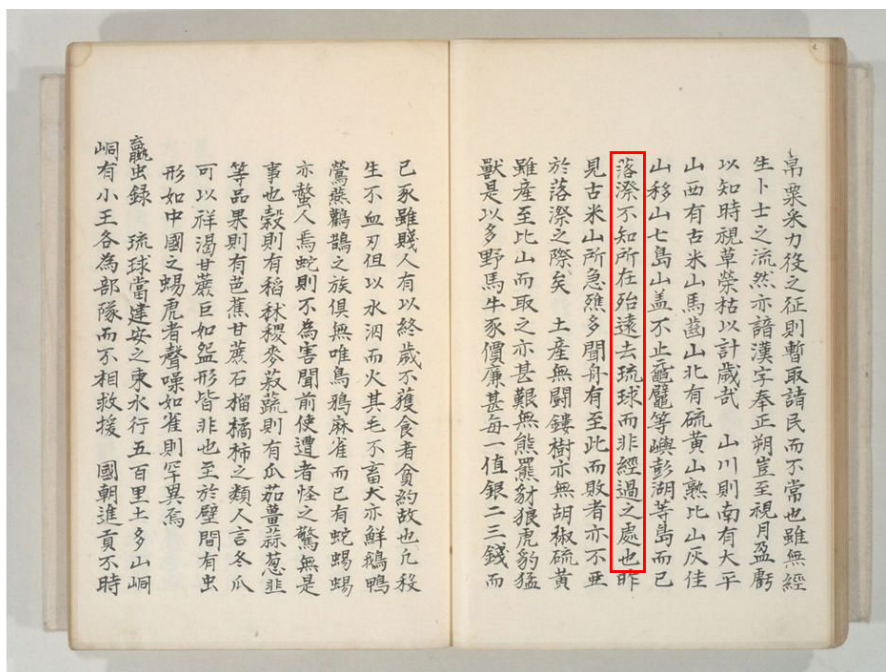 帛粟采力役之征則暫取諸民而不常也雖無經
生卜士之流然亦諳漢字奉正朔豈至視月盈虧
以知時視草榮枯以計歲哉　山川則南有大平
山西有古米山馬齒山北有硫黃山熟比山灰佳
山移山七島山盖不止黿鼊等嶼彭湖等島而已
落漈不知所在殆遠去琉球而非經過之處也昨
見古米山所急𤄃多聞舟有至此而敗者亦不亜
於落漈之際矣　土産無鬪鏤樹亦無胡椒硫黃
雖産至比山而取之亦甚艱無熊羆豺狼虎豹猛
獸是以多野馬牛豕價廉甚每一值銀二三錢而
已豕雖賤人有以終歲不獲食者貧約故也凢殺
生不血刃但以水泅而火其毛不畜犬亦鮮鵝鴨
鶯燕鸛鵲之族俱無唯烏鴉麻雀而已有蛇蝎蜴
亦螫人焉蛇則不為害聞前使遭者怪之驚無是
事也穀則有稻秫稷麥菽蔬則有瓜茄薑蒜葱韭
等品果則有芭蕉甘蔗石榴橘柿之類人言冬瓜
可以祥渴甘蔗巨如盌形皆非也至於壁間有虫
形如中國之蜴虎者聲噪如雀則罕異焉
蠃虫録　琉球當建安之東水行五百里土多山峒
峒有小王各為部隊而不相救援　國朝進貢不時